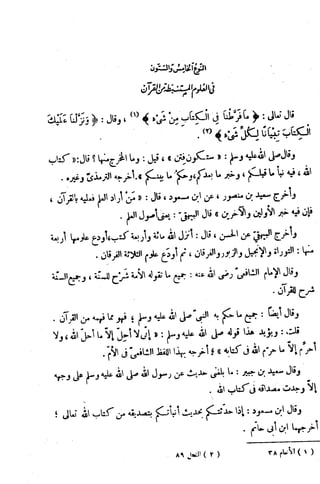 النوع الخامس والستون
في العلوم المستنبطة من القرآن
قال تعالى : ﴿ مَا فَرَّطْنَا فِي الْكِتَابِ مِنْ شَيْءٍ ﴾ (١) ، وقال : ﴿ وَنَزَّلْنَا عَلَيْكَ
الْكِتَابَ تِبْيَانًا لِكُلِّ شَيْءٍ ﴾ (٢) .
وقال صلى الله عليه وسلم : « ستكون فتن » ، قيل : وما المخرج منها ؟ قال : « كتاب
الله ، فيه نبأ ما قبلكم ، وخبر ما بعدكم ، وحكم ما بينكم » . أخرجه الترمذيّ وغيره .
وأخرج سعيد بن منصور ، عن ابن مسعود ، قال : « مَنْ أراد العلم فعليه بالقرآن ،
فإن فيه خبر الأولين والآخرين » قال البيهقيّ : يعني أصول العلم .
وأخرج البيهقيّ عن الحسن ، قال : أنزل الله مائة وأربعة كتب ، أودع علومها أربعة
منها : التوراة والإنجيل والزبور والفرقان ، ثم أودع علوم الثلاثة الفرقان .
وقال الإمام الشافعيّ رضى الله عنه : جميع ما تقوله الأمة شَرْح للسنّة ، وجميع السنّة
شرح للقرآن .
وقال أيضاً : جميع ما حكم به النبيّ صلى الله عليه وسلم ؛ فهو مما فهمه من القرآن .
قلت : ويؤيد هذا قوله صلى الله عليه وسلم : « إنّى لا أحِلّ إلاّ ما أحلّ الله ، ولا
أحرِّم إلاّ ما حرم الله فى كتابه » ؛ أخرجه بهذا اللفظ الشافعيّ فى الأمّ .
وقال سعيد بن جبير : ما بلغنى حديث عن رسول الله صلى الله عليه وسلم على وجهه
إلاّ وجدت مصداقه فى كتاب الله .
وقال ابن مسعود : إذا حدّثتكم بحديث أنبأتكم بتصديقه من كتاب الله تعالى ؛
أخرجهما ابن أبى حاتم .
( ١ ) الأنعام ٣٨
( ٢ ) النحل ٨٩